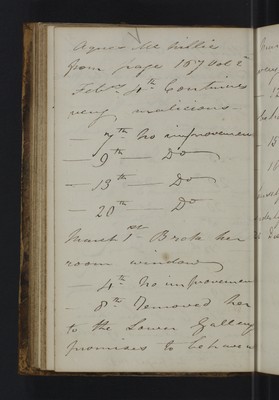 Agnes Mc Millie
from page 157 Vol 2
Feby 4th Continues
very malicious -
- 7th No improvement
- 9th - Do
- 13th - Do
- 20th - Do
March 1st Broke her
room window
- 4th No improvement
- 8th Removed her
to the Lower Gallery
promises to behave